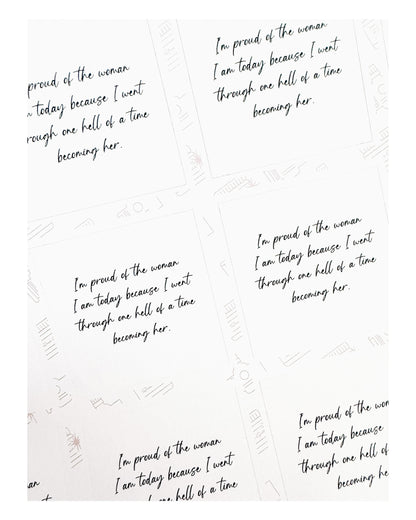 proud of the woman
today because I went
rough one hell of a time
becoming her.
Im proud of the woman
I am today because I went
through one hell of a time
becoming her.
Im proud of the woman
I am today because I went
through one hell of a time
becoming her.
Im proud of the woman
I am today because I went
through one hell of a time
becoming her.
an
Im proud of the woman
I am today because I went
through one hell of a time
Im proud of the wo
I am today because
through one hell of
becoming he